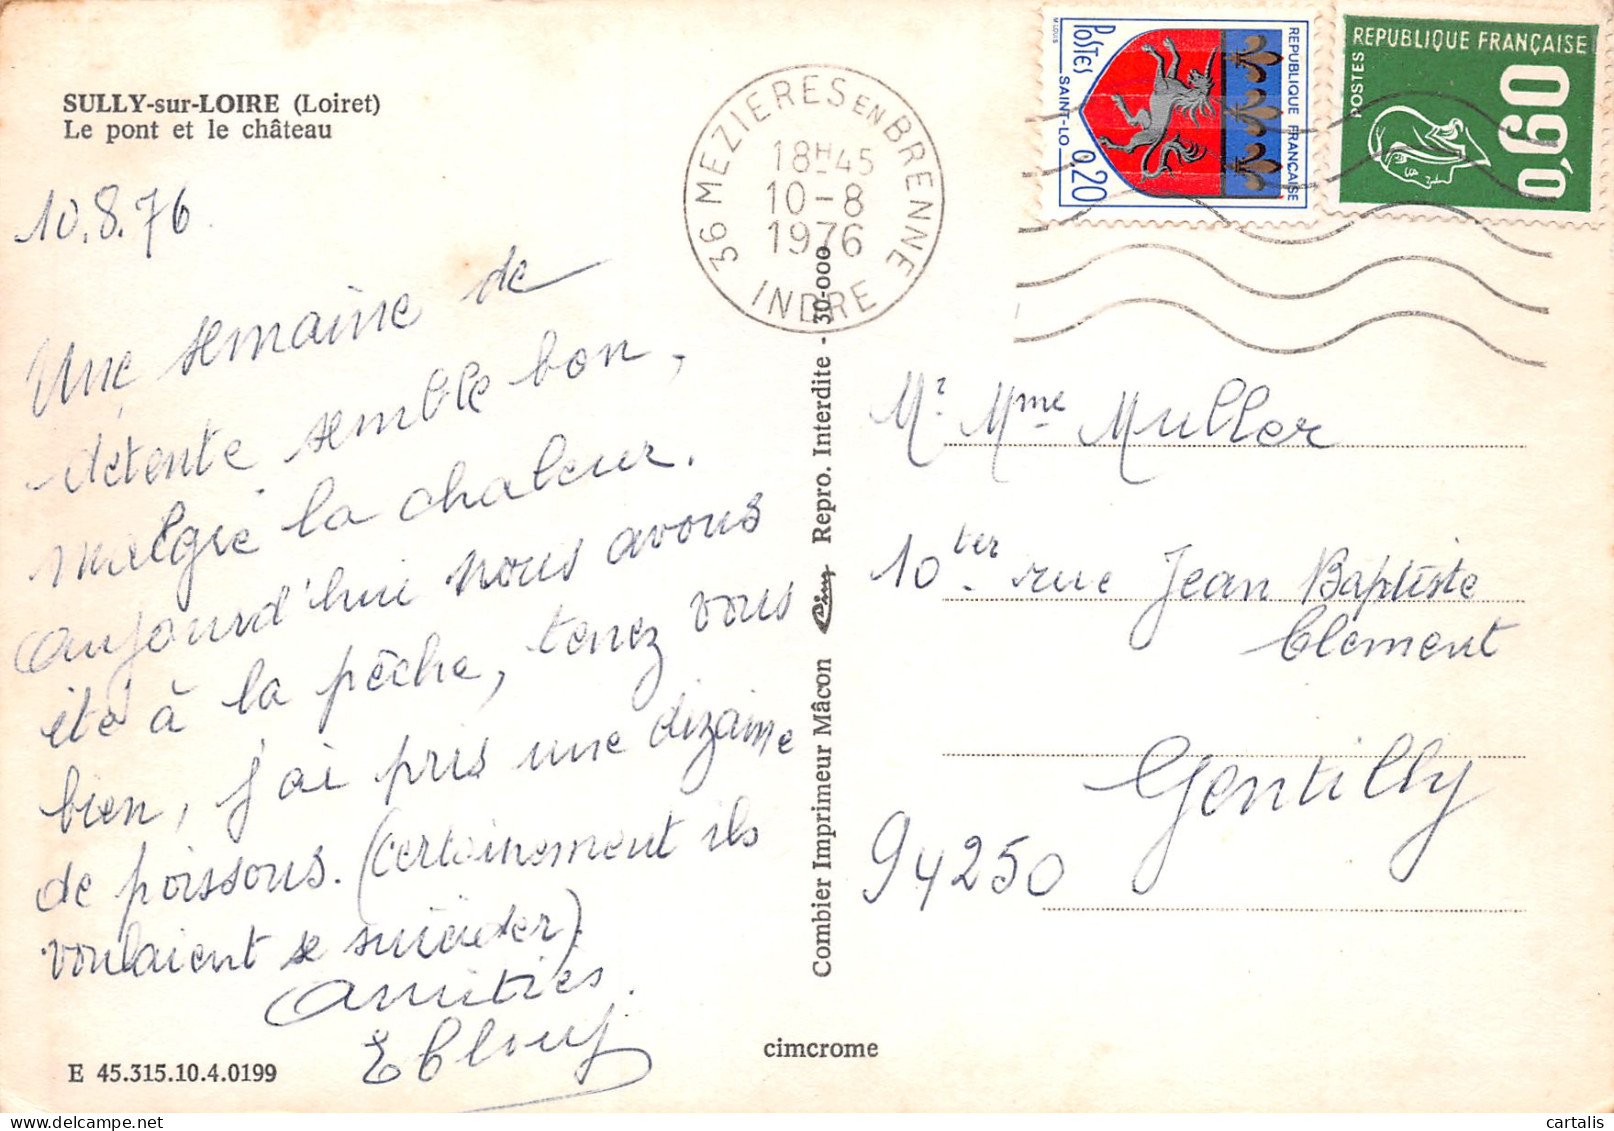 SULLY-sur-LOIRE (Loiret)
Le pont et le château
10.8.76
Une semaine de
détente semble bon,
malgré la chaleur.
Aujourd'hui nous avons
été à la pêche, tenez vous
bien, j'ai pris une dizaine
de poissons. (certainement ils
voulaient se suicider).
Amitiés.
E 45.315.10.4.0199
36 MEZIERES EN BRENNE
18H45
10-8
1976
INDRE
POSTES
SAINT-LO
0,20
REPUBLIQUE FRANÇAISE
M.LOUIS
REPUBLIQUE FRANÇAISE
POSTES
0,60
Combier Imprimeur Mâcon Cim Repro. Interdite - 30-000
Mr Mme Muller
10 ter rue Jean Baptiste
Clement
Gentilly
94250
cimcrome
cartalis | delcampe.net